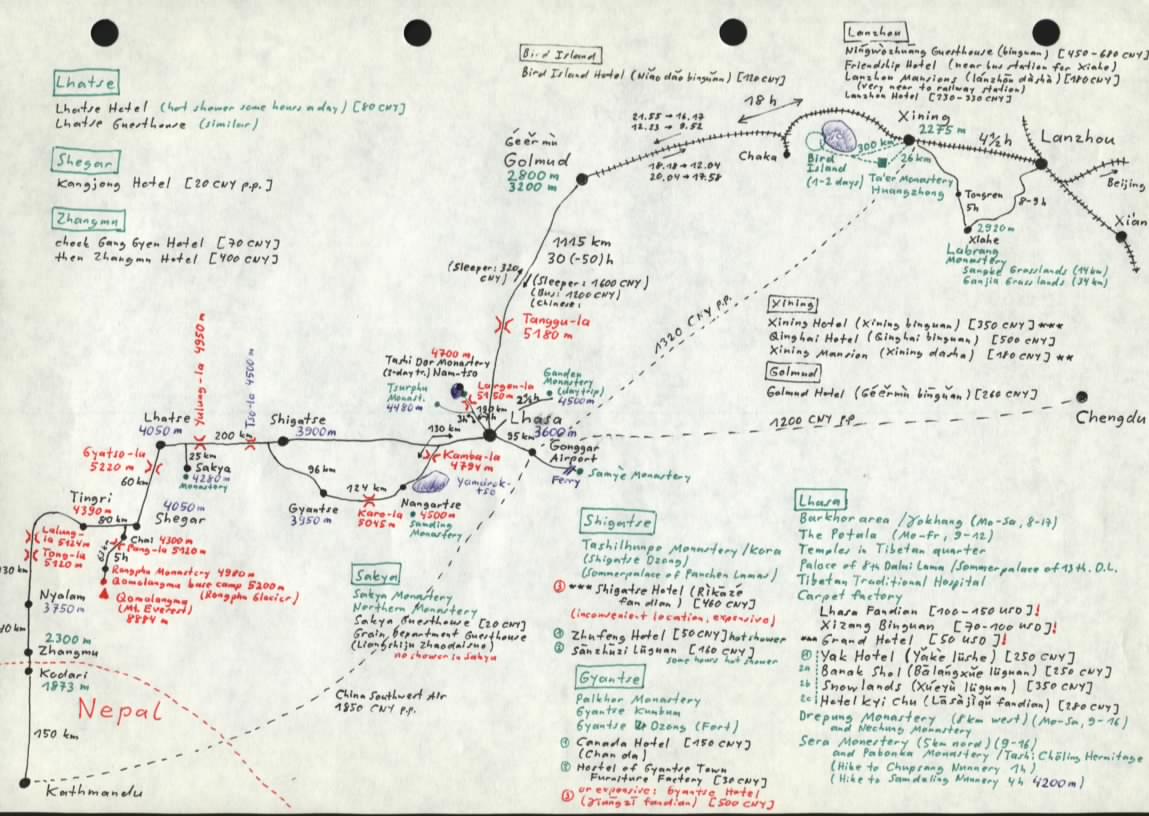 Lhatse
Lhatse Hotel (hot shower some hours a day) [80 CNY]
Lhatse Guesthouse (similar)
Shegar
Kangjong Hotel [20 CNY p.p.]
Zhangmu
check Gang Gyen Hotel [70 CNY]
then Zhangmu Hotel [400 CNY]
Bird Island
Bird Island Hotel (Niǎo dǎo bīnguǎn) [120 CNY]
Lanzhou
Níngwòzhuāng Guesthouse (binguan) [450-680 CNY]
Friendship Hotel (near bus station for Xiahe)
Lanzhou Mansions (lánzhōu dàshà) [180 CNY]
(very near to railway station)
Lanzhou Hotel [230-330 CNY]
18 h
21.55 → 16.17
12.23 → 8.52
18.18 → 12.04
20.04 → 17.58
Géěrmù
Golmud
2800 m
3200 m
Chaka
Bird
Island
(1-2 days)
300 km
26 km
Ta'er Monastery
Huangzhong
Xining
2275 m
4½ h
Lanzhou
Beijing
Xian
Tongren
5h
8-9h
2920 m
Xiahe
Labrang
Monastery
Sangke Grasslands (14 km)
Ganjia Grasslands (34 km)
1115 km
30 (-50) h
(Sleeper: 320
CNY)
(Sleeper: 1600 CNY)
(Bus: 1200 CNY)
(Chinese:
Tanggu-la
5180 m
1320 CNY p.p.
Xining
Xining Hotel (Xining binguan) [350 CNY] ***
Qinghai Hotel (Qinghai binguan) [500 CNY]
Xining Mansion (Xining dasha) [180 CNY] **
Golmud
Golmud Hotel (Géěrmù bīnguǎn) [260 CNY]
Chengdu
1200 CNY p.p.
4700 m
Tashi Dor Monastery
(2-day tr.) Nam-tso
Tsurphu
Monast.
4480 m
Largen-la
5150 m
Ganden
Monastery
(daytrip)
4500 m
2½h
3h
180 km
Lhasa
3600 m
95 km
Gonggar
Airport
Ferry
Samye Monastery
130 km
Kamba-la
4794 m
Yamdrok-
tso
Nangartse
4500 m
Samding
Monastery
124 km
Karo-la
5045 m
Gyantse
3950 m
96 km
Shigatse
3900 m
Tso-la 4500 m
Yulung-la 4950 m
200 km
Lhatse
4050 m
25 km
Sakya
4280 m
Monastery
Gyatso-la
5220 m
60 km
4050 m
Shegar
Tingri
4390 m
80 km
Chai 4300 m
Pang-la 5120 m
63 km
5h
Rongphu Monastery 4980 m
Qomolangma base camp 5200 m
(Rongphu Glacier)
Qomolangma
(Mt. Everest)
8884 m
Lalung-
la 5124 m
Tong-la
5120 m
Nyalam
3750 m
2300 m
Zhangmu
Kodari
1873 m
Nepal
150 km
Kathmandu
China Southwest Air
1850 CNY p.p.
Sakya
Sakya Monastery
Northern Monastery
Sakya Guesthouse [20 CNY]
Grain Department Guesthouse
(Liangshiju Zhaodaisuo)
no shower in Sakya
Shigatse
Tashilhunpo Monastery / Kora
(Shigatse Dzong)
(Sommerpalace of Panchen Lamas)
③ *** Shigatse Hotel (Rìkāzé
fandian) [460 CNY]
(inconvenient location, expensive)
① Zhufeng Hotel [50 CNY] hot shower
② Sānzhūzi Lǚguǎn [160 CNY]
some hours hot shower
Gyantse
Palkhor Monastery
Gyantse Kumbum
Gyantse Dzong (Fort)
① Canada Hotel [150 CNY]
(Chan da)
② Hostel of Gyantse Town
Furniture Factory [30 CNY]
③ or expensive: Gyantse Hotel
(Jiāngzī fandian) [500 CNY]
Lhasa
Barkhor area / Jokhang (Mo-Sa, 8-17)
The Potala (Mo-Fr, 9-12)
Temples in Tibetan quarter
Palace of 8th Dalai Lama / Sommerpalace of 13th. D.L.
Tibetan Traditional Hospital
Carpet factory
Lhasa Fandian [100-150 USD]!
Xizang Binguan [70-100 USD]!
*** Grand Hotel [50 USD]!
① Yak Hotel (Yǎkè lǚshè) [250 CNY]
2a Banak Shol (Bālángxuě lǚguǎn) [250 CNY]
2b Snowlands (Xuěyù lǚguǎn) [350 CNY]
2c Hotel Kyi Chu (Lāsàjíqǔ fandian) [280 CNY]
Drepung Monastery (8km west) (Mo-Sa, 9-16)
and Nechung Monastery
Sera Monestery (5km nord) (9-16)
and Pabonka Monastery / Tashi Chöling Hermitage
(Hike to Chupsang Nunnery 1h)
(Hike to Samdaling Nunnery 4h 4200 m)